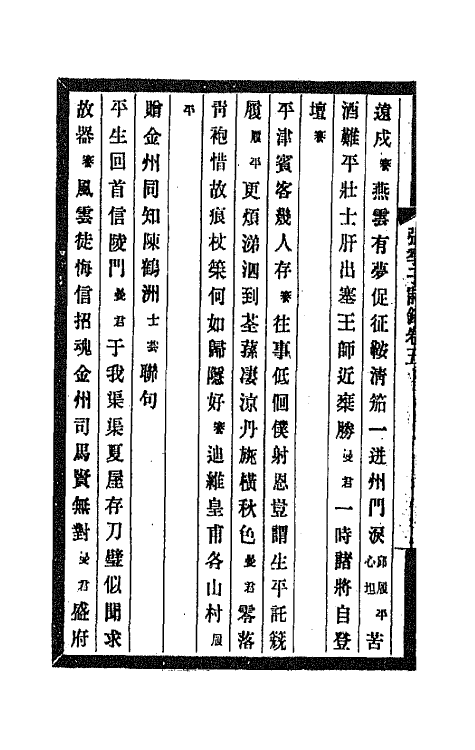 遠戍謇燕雲有夢促征鞍淸笳一迸州門淚邱履平心坦苦
酒難平壯士肝出塞王師近棄勝曼君一時諸將自登
壇謇
平津賓客幾人存謇往事低徊僕射恩豈謂生平託簳
履履平更煩涕泗到荃蓀凄涼丹旐橫秋色曼君零落
靑袍惜故痕杖策何如歸隱好謇迪維皇甫各山村履
平
贈金州同知陳鶴洲士芸聯句
平生回首信陵門曼君于我渠渠夏屋存刀璧似聞求
故器謇風雲徒悔信招魂金州司馬賢無對曼君盛府